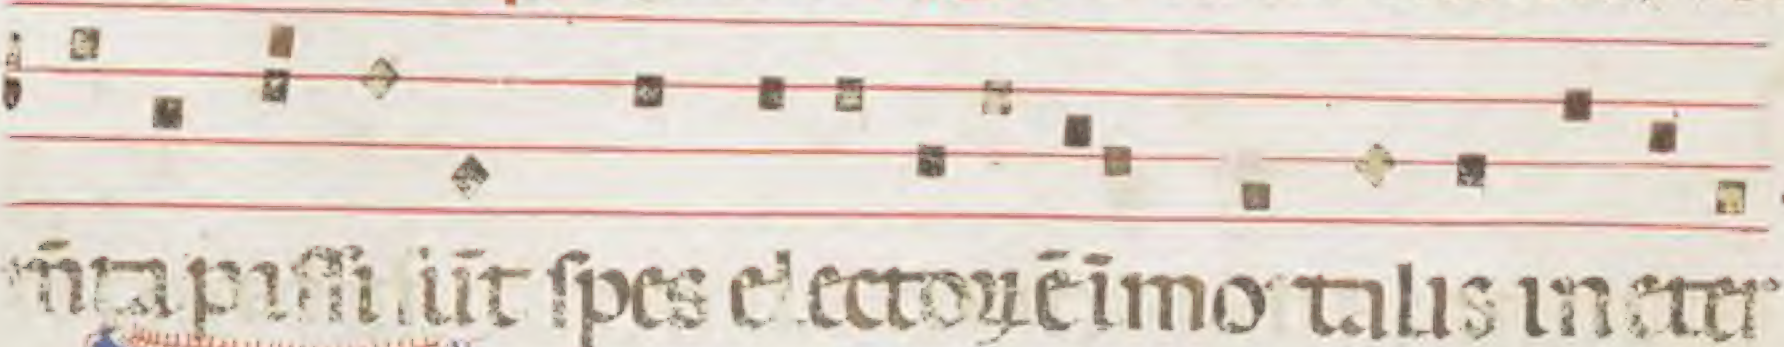 m̄ta passi sūt spes electoꝝ ē īmortalis in eter